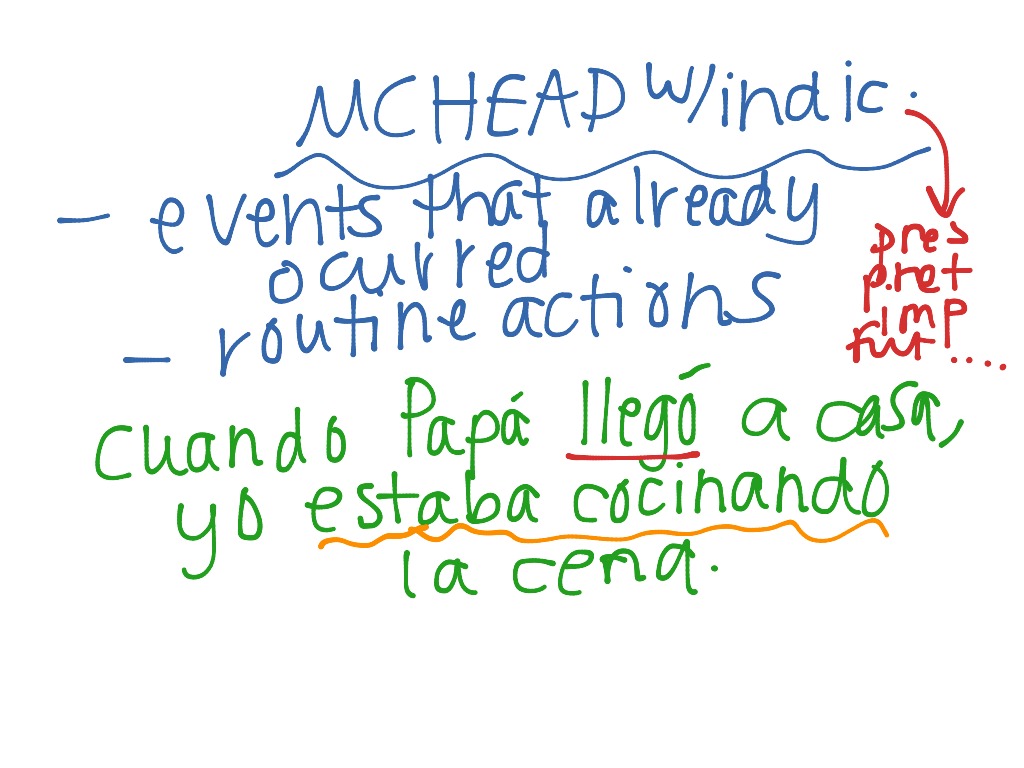 MCHEAD w/indic.
- events that already
ocurred
- routine actions
pres
pret
imp
fut....
Cuando Papá llegó a casa,
yo estaba cocinando
la cena.